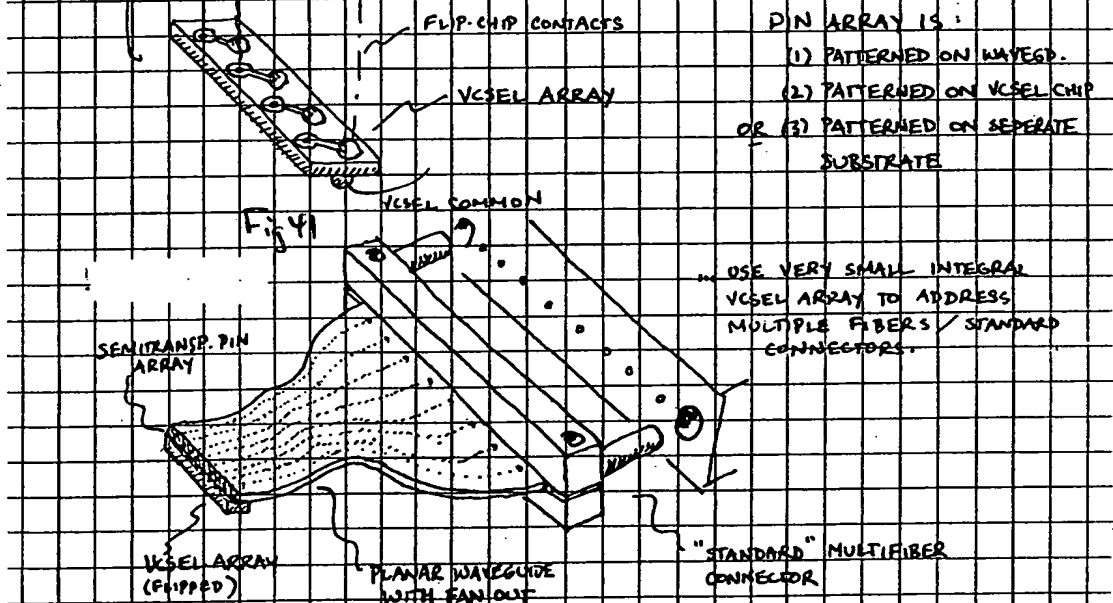 FLIP-CHIP CONTACTS
VCSEL ARRAY
VCSEL COMMON
PIN ARRAY IS :
(1) PATTERNED ON WAVEGD.
(2) PATTERNED ON VCSEL CHIP
OR (3) PATTERNED ON SEPERATE
SUBSTRATE
Fig 41
USE VERY SMALL INTEGRAL
VCSEL ARRAY TO ADDRESS
MULTIPLE FIBERS / STANDARD
CONNECTORS.
SEMITRANSP. PIN
ARRAY
VCSEL ARRAY
(FLIPPED)
PLANAR WAVEGUIDE
WITH FAN OUT
"STANDARD" MULTIFIBER
CONNECTOR